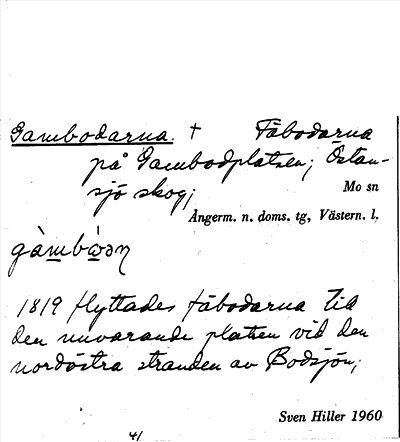 Gambodarna. † Fäbodarna
på Gambodplatsen; Östan-
sjö skog;
Mo sn
Ångerm. n. doms. tg, Västern. l.
gàmbωən
1819 flyttades fäbodarna till
den nuvarande platsen vid den
nordöstra stranden av Bodsjön;
Sven Hiller 1960